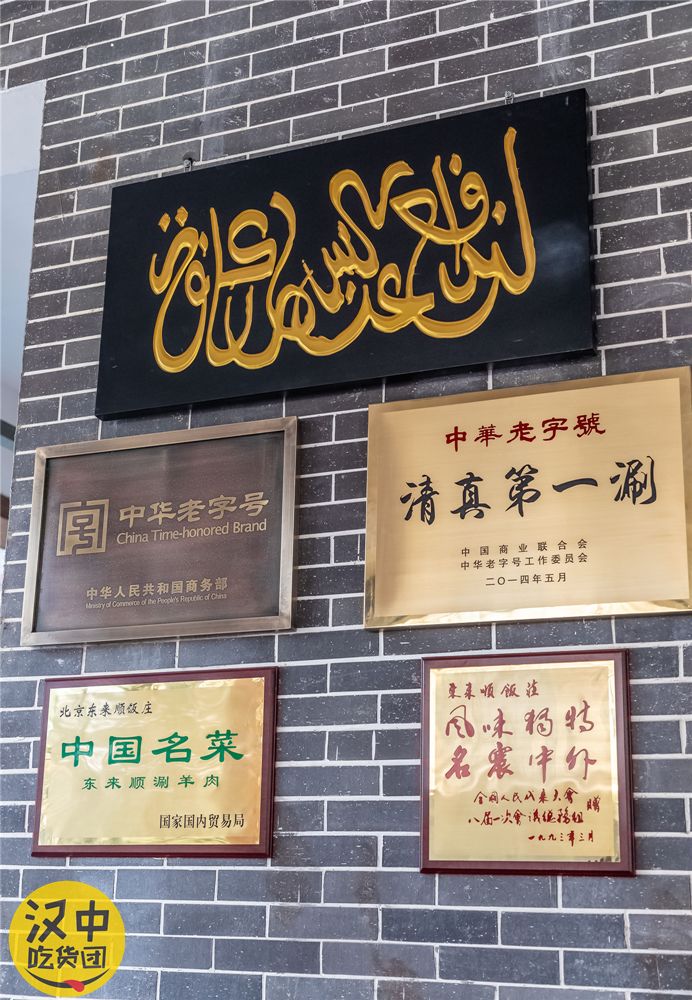 中华老字号
China Time-honored Brand
中华人民共和国商务部
Ministry of Commerce of the People's Republic of China
中華老字號
清真第一涮
中国商业联合会
中华老字号工作委员会
二〇一四年五月
北京东来顺饭庄
中国名菜
东来顺涮羊肉
国家国内贸易局
东来顺饭庄
风味独特
名震中外
全国人民代表大会
八届一次会议总务组 赠
一九九三年三月
汉中
吃货团